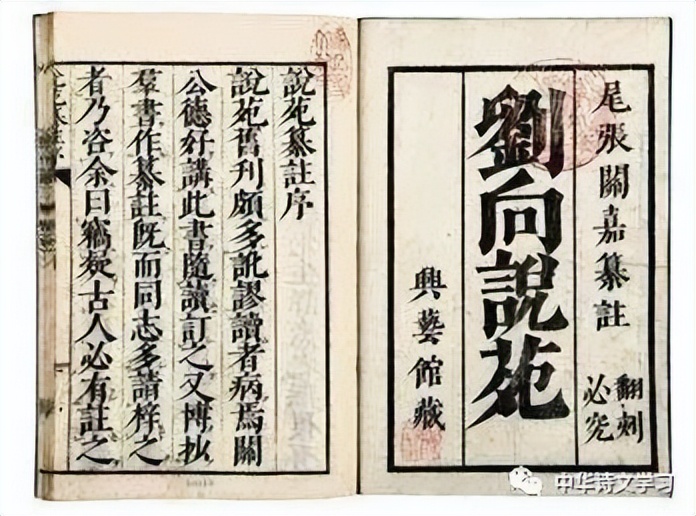 尾張關嘉纂註
翻刻必究
劉向說苑
興藝館藏
說苑纂註序
說苑舊刊頗多訛謬讀者病焉關
公德好講此書隨讀訂之又博抄
羣書作纂註既而同志多請梓之
者乃咨余曰竊疑古人必有註之
中华诗文学习